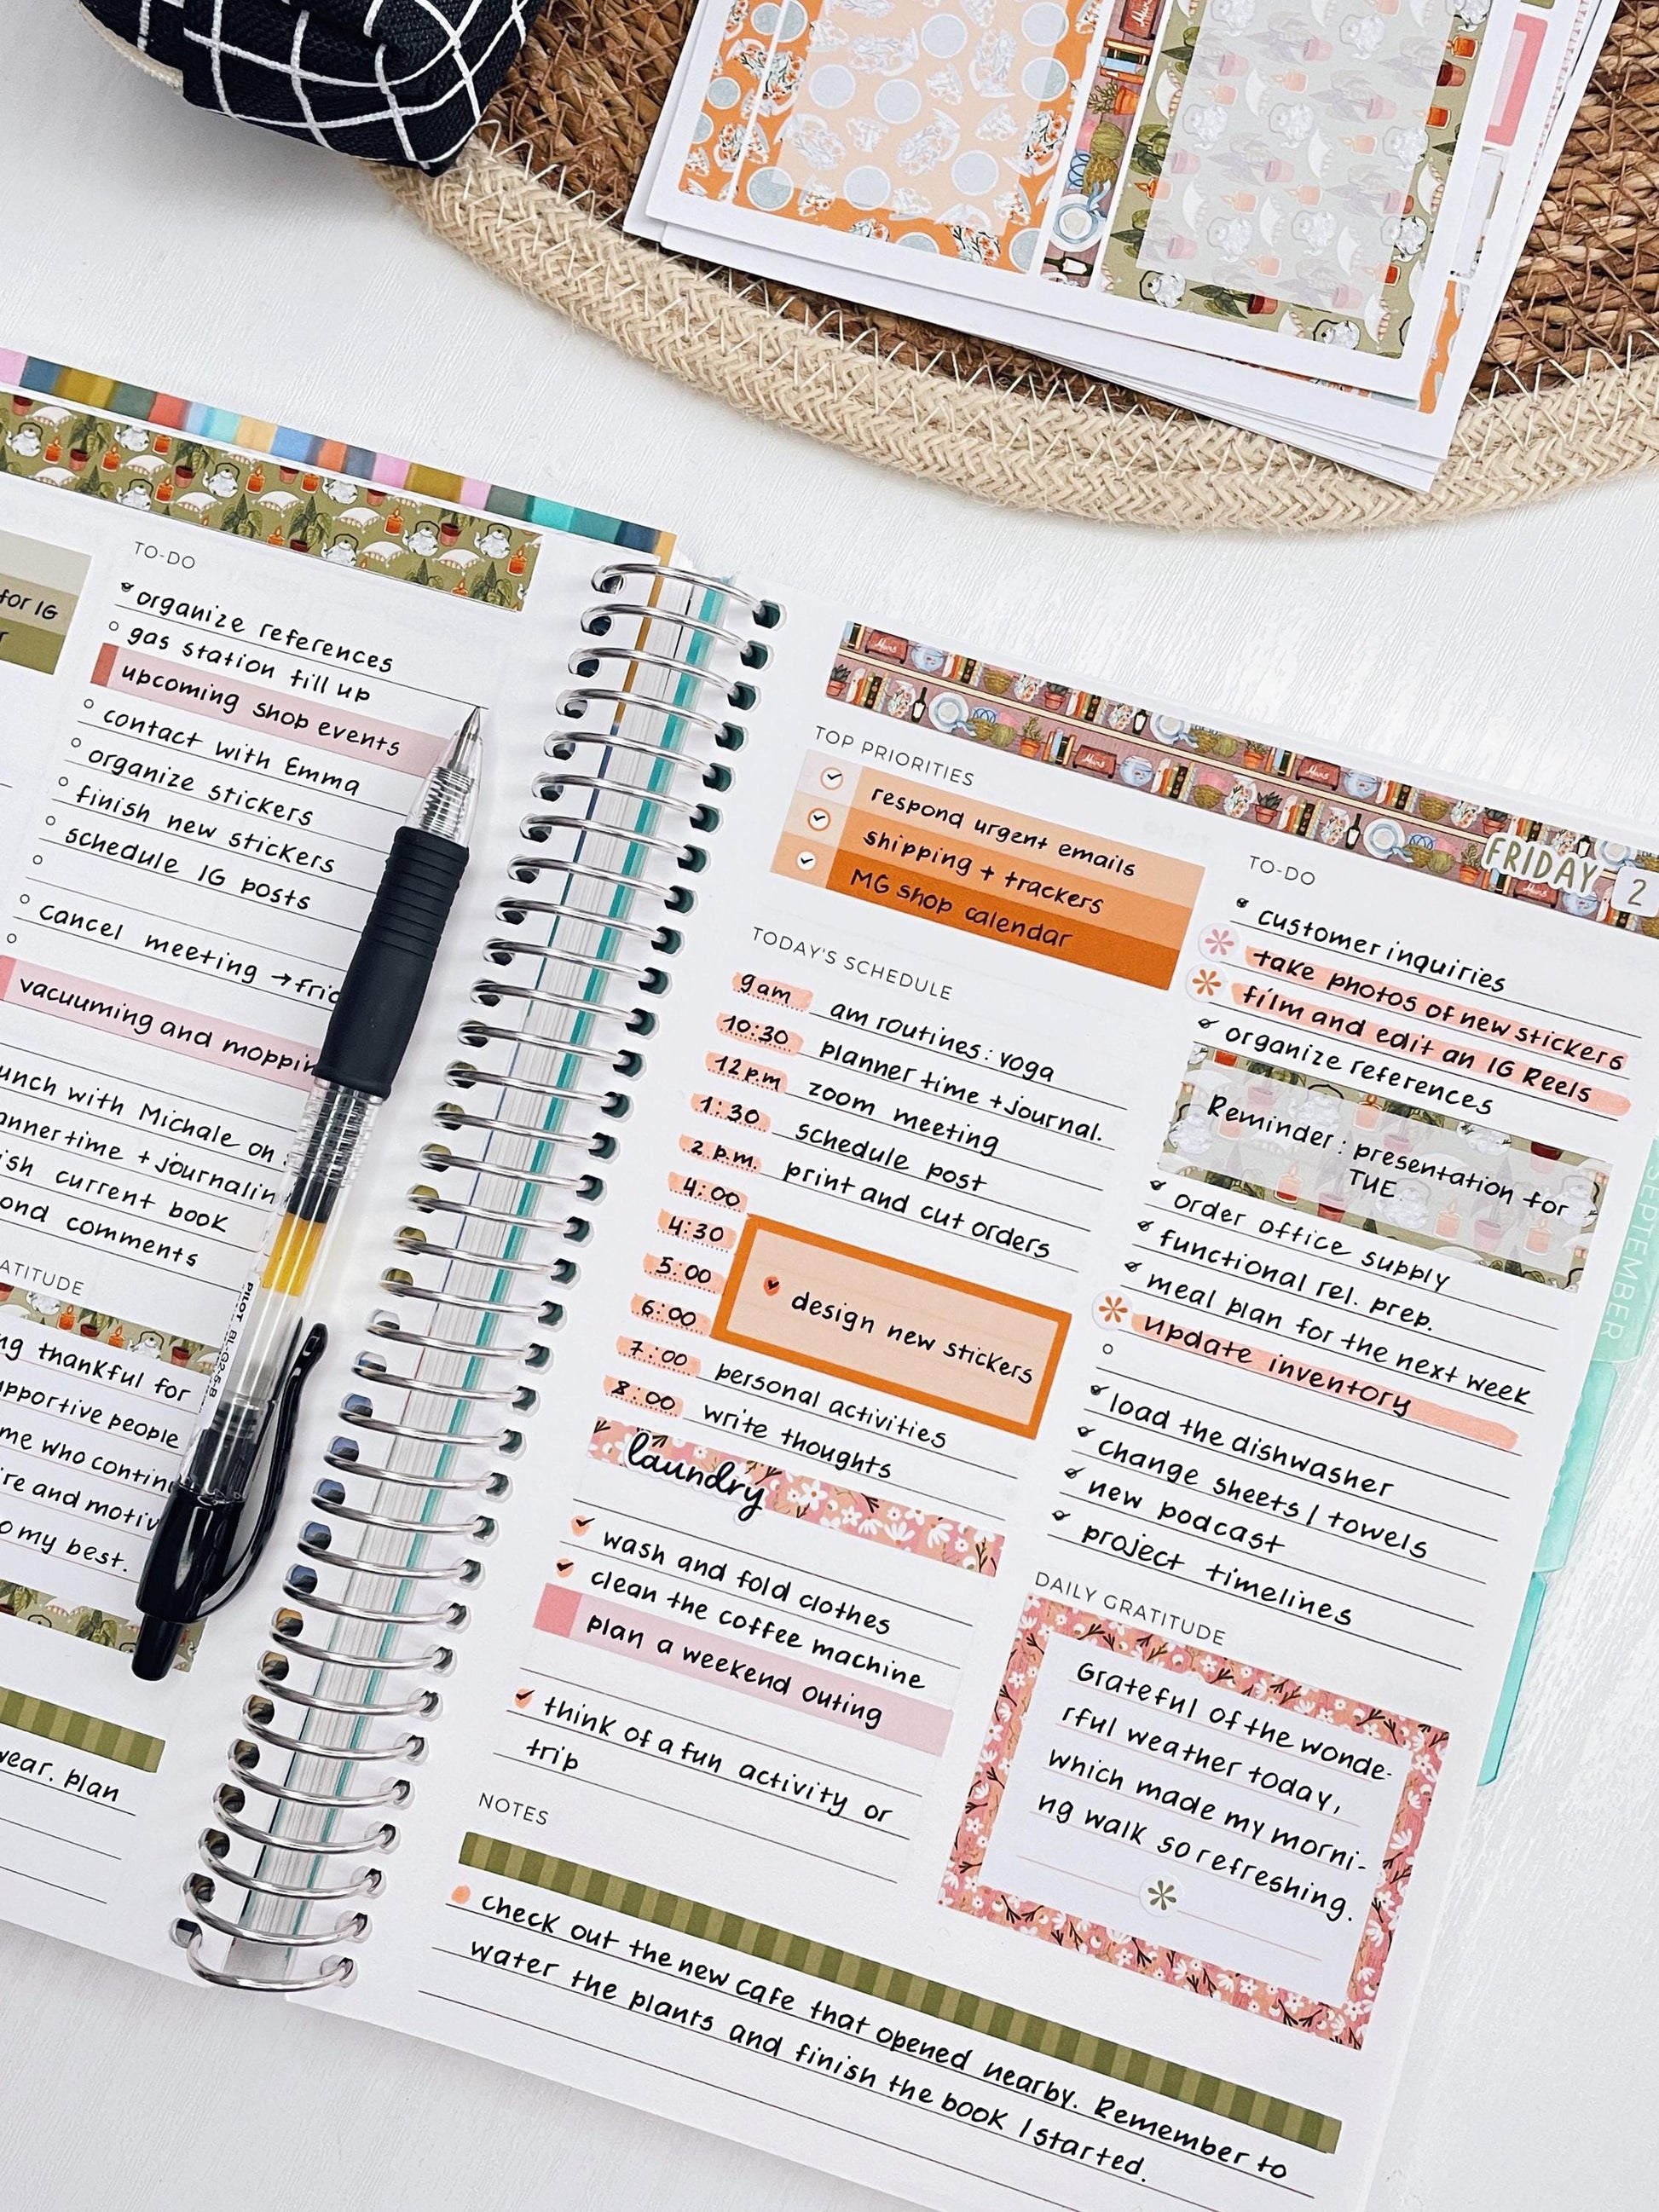 for IG
TO-DO
organize references
gas station fill up
upcoming shop events
contact with Emma
organize stickers
finish new stickers
schedule IG posts
cancel meeting → fri
vacuuming and moppin
unch with Michale on
anner time + Journalin
ish current book
ond comments
ATITUDE
ng thankful for
upportive people
me who contin
re and motiv
o my best.
wear. plan
PILOT BL-G2-5-B
TOP PRIORITIES
respond urgent emails
shipping + trackers
MG shop calendar
TODAY'S SCHEDULE
9am am routines: yoga
10:30 planner time + Journal.
12p.m zoom meeting
1:30 schedule post
2 p.m. print and cut orders
4:00
4:30
5:00 design new stickers
6:00
7:00 personal activities
8:00 write thoughts
laundry
wash and fold clothes
clean the coffee machine
plan a weekend outing
think of a fun activity or
trip
FRIDAY 2
TO-DO
customer inquiries
take photos of new stickers
film and edit an IG Reels
organize references
Reminder: presentation for
TUE
order office supply
functional rel. prep.
meal plan for the next week
update inventory
load the dishwasher
change sheets / towels
new podcast
project timelines
DAILY GRATITUDE
Grateful of the wonde-
rful weather today,
which made my morni-
ng walk so refreshing.
NOTES
check out the new cafe that opened nearby. Remember to
water the plants and finish the book I started.
SEPTEMBER